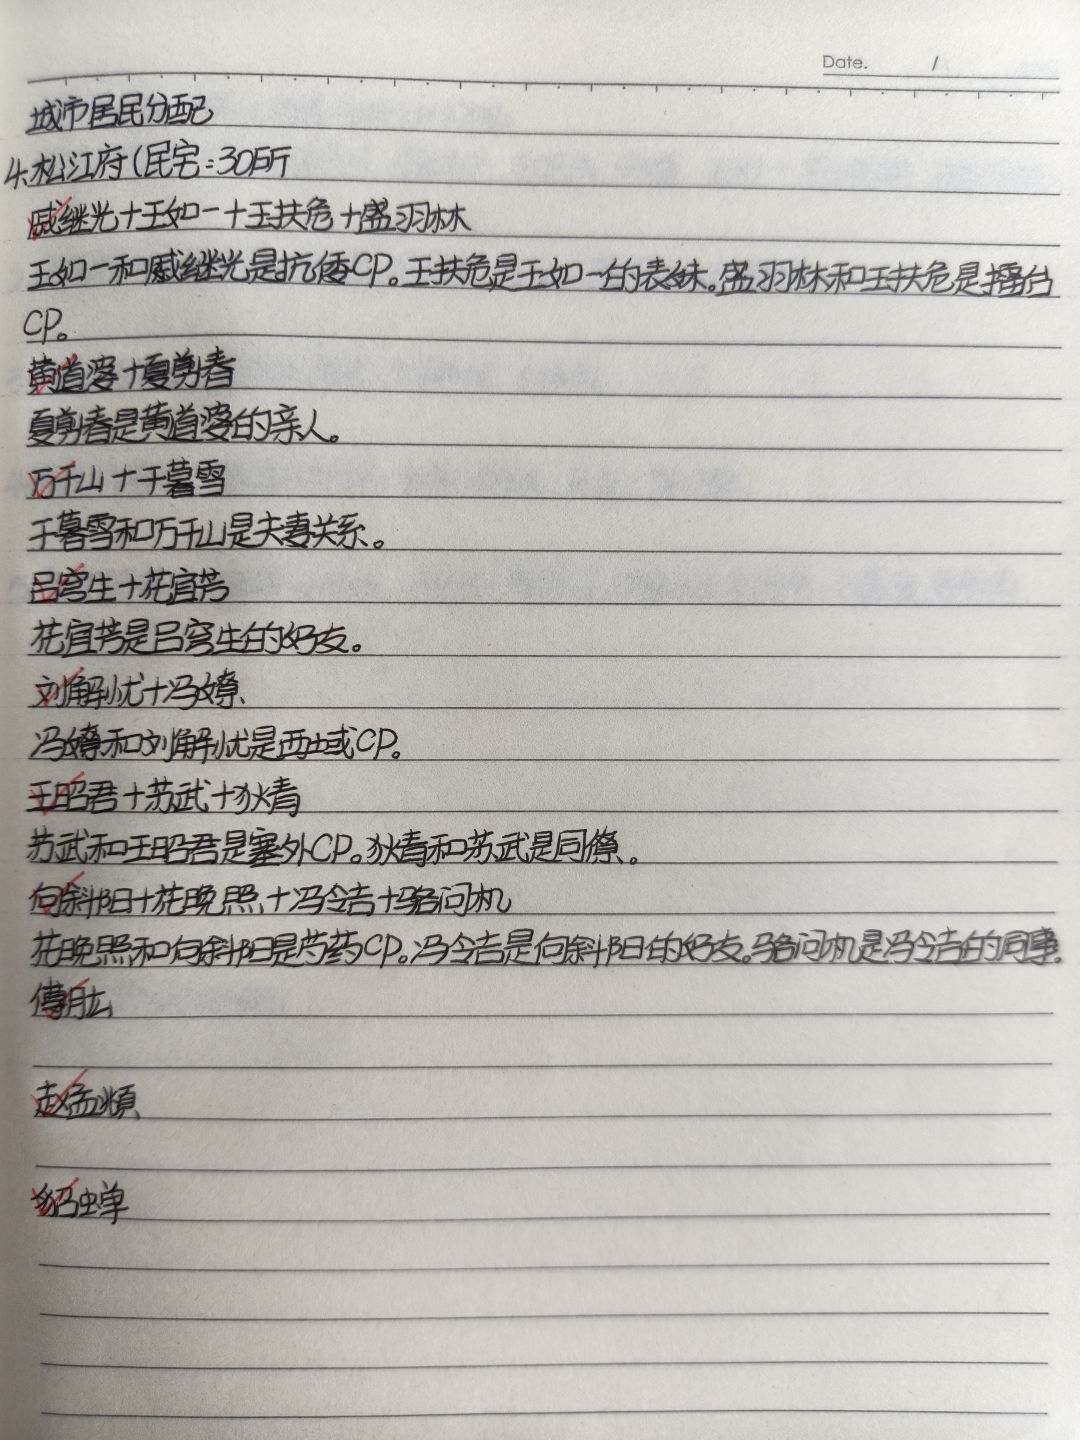 Date. /
城市居民分配
4.松江府(民宅:30所
戚继光+王如一+王扶危+盛羽林
王如一和戚继光是抗倭CP。王扶危是王如一的表妹。盛羽林和王扶危是擂台
CP。
黄道婆+夏剪春
夏剪春是黄道婆的亲人。
万千山+于暮雪
于暮雪和万千山是夫妻关系。
吕穹生+花宜芳
花宜芳是吕穹生的好友。
刘解忧+冯嫽
冯嫽和刘解忧是西域CP。
王昭君+苏武+狄青
苏武和王昭君是塞外CP。狄青和苏武是同僚。
向斜阳+花晚照+冯令吉+骆问机
花晚照和向斜阳是芍药CP。冯令吉是向斜阳的好友。骆问机是冯令吉的同事.
傅肱
赵孟頫
貂蝉